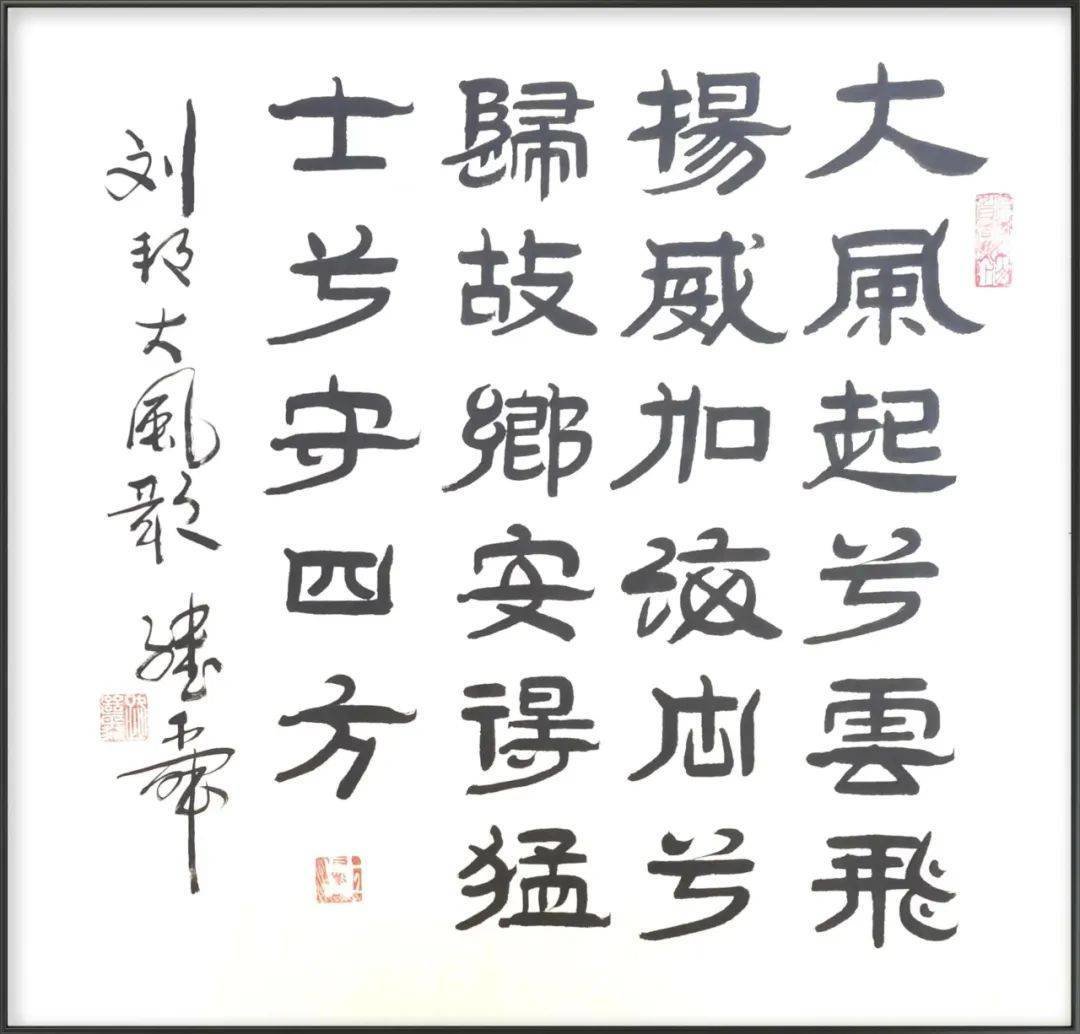 大風起兮雲飛
揚威加海内兮
歸故鄉安得猛
士兮守四方
刘邦大風歌